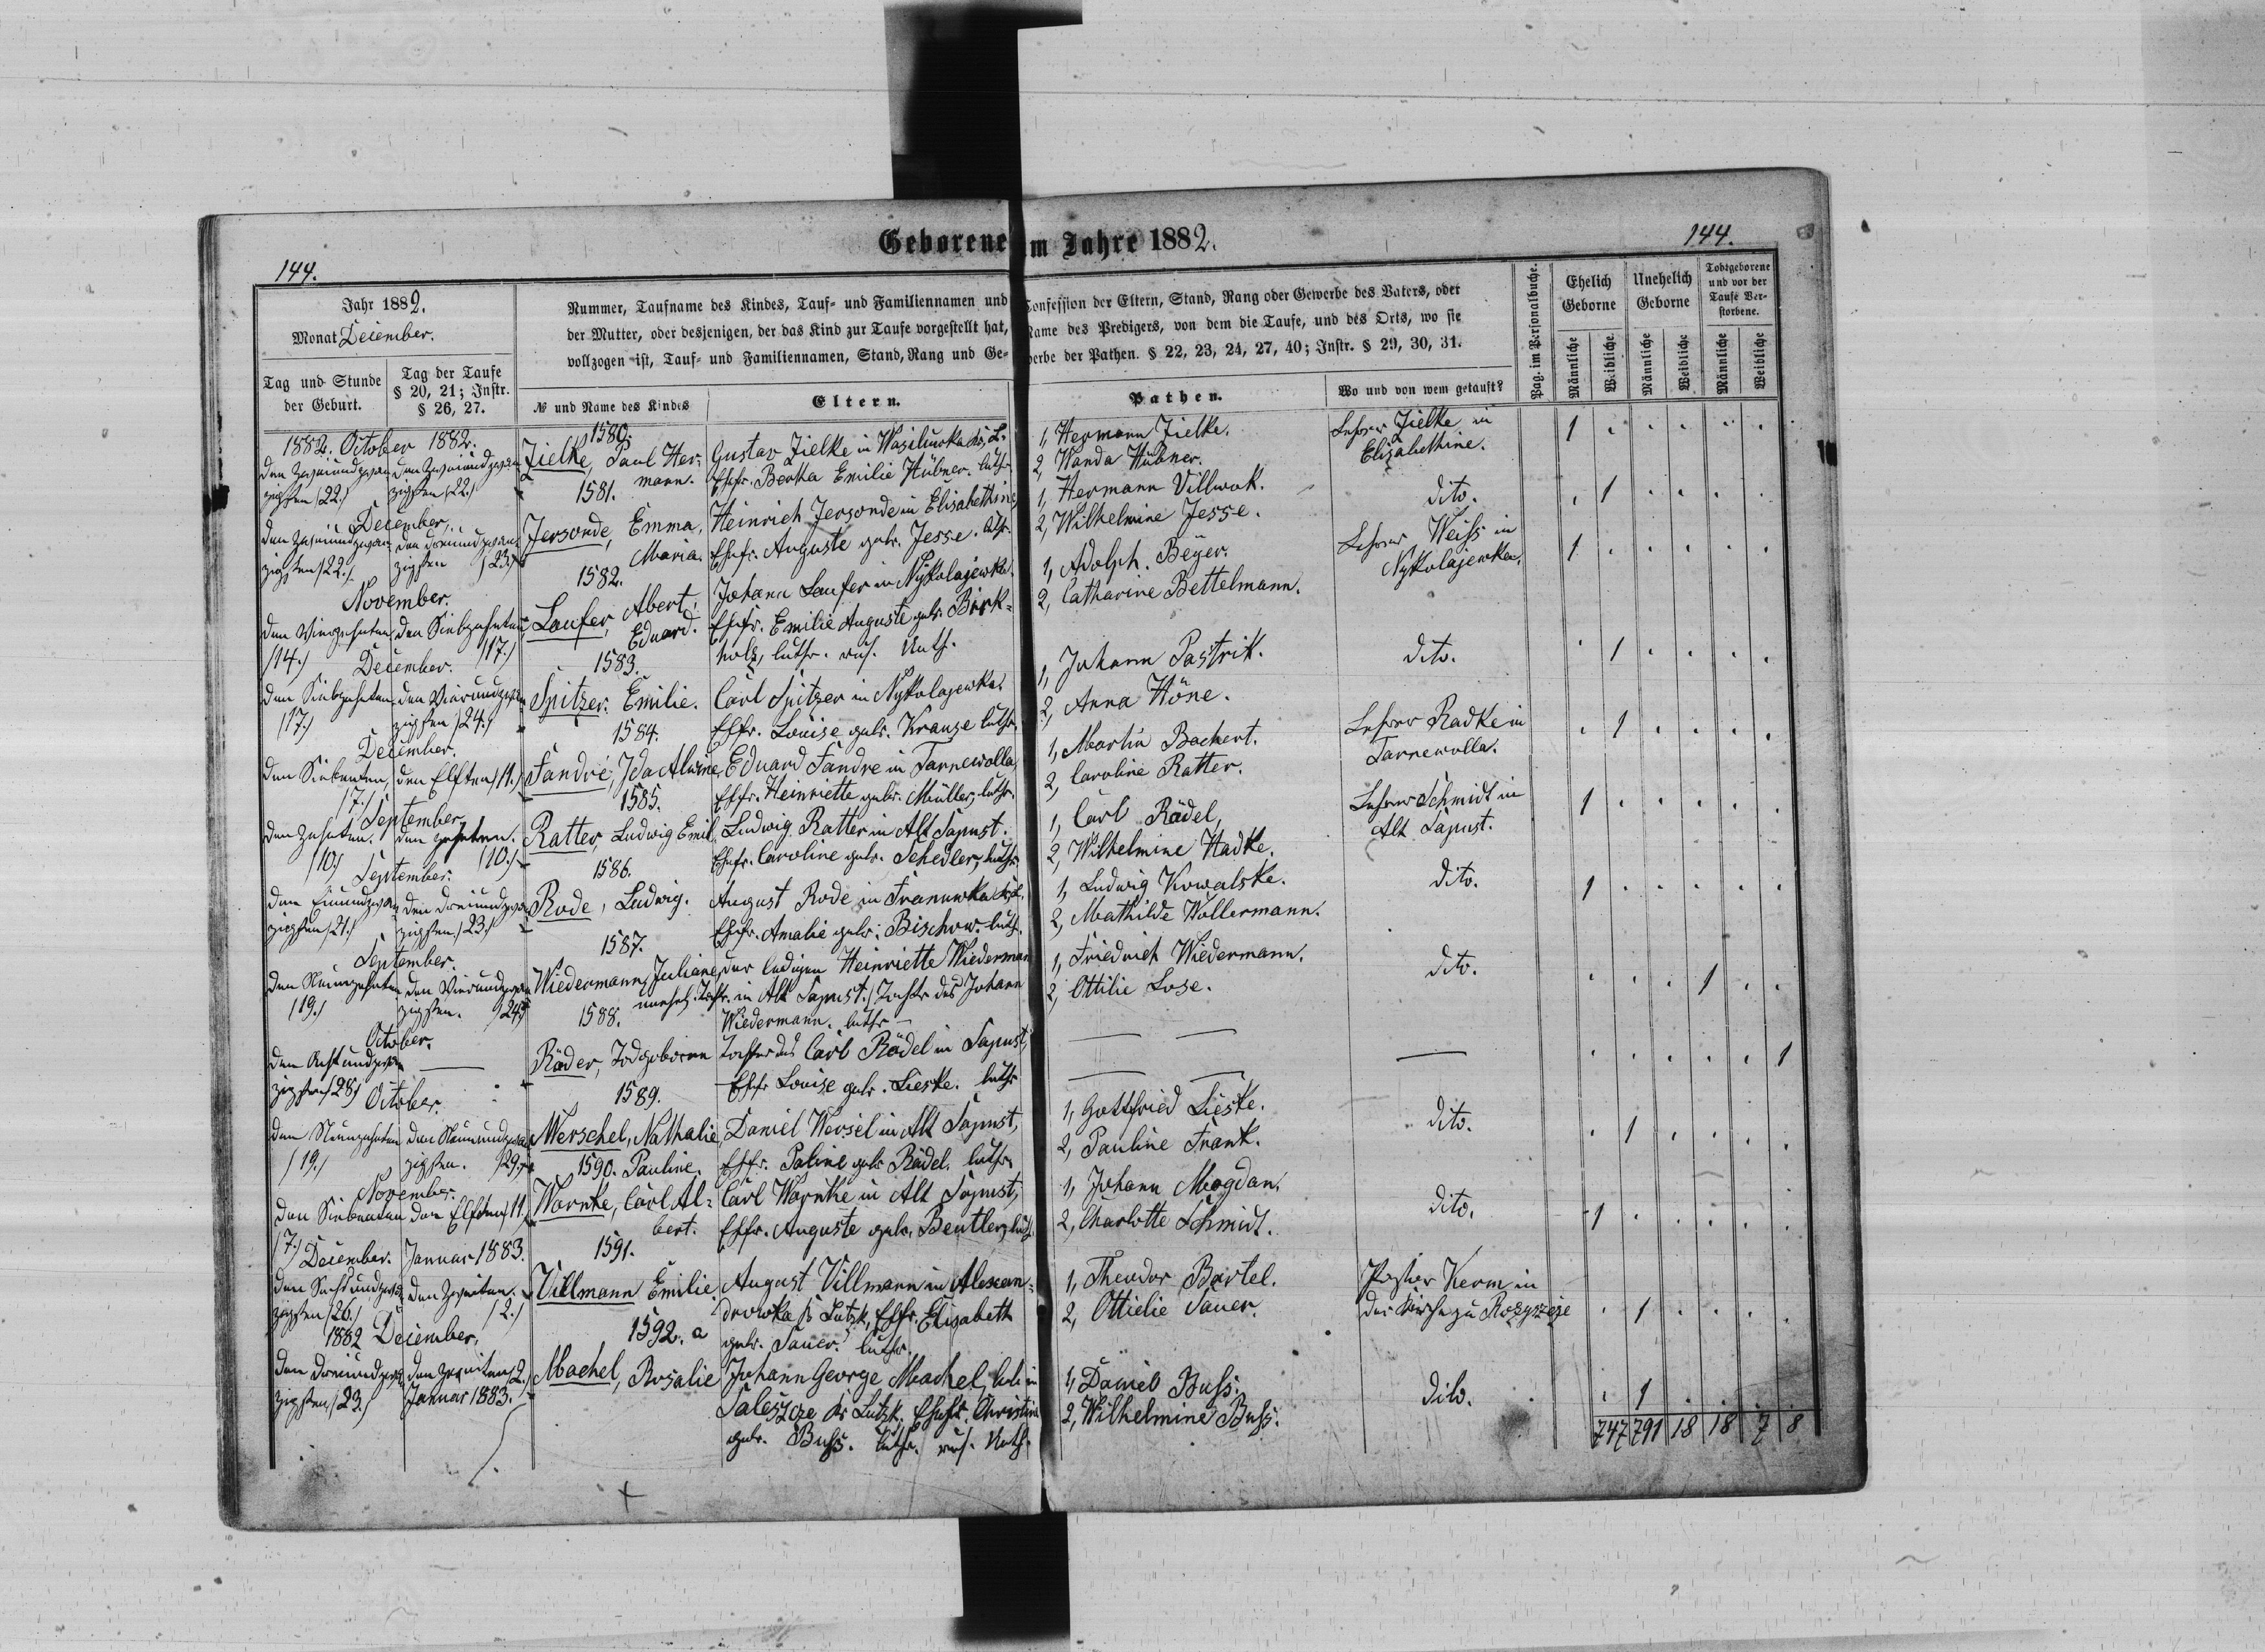 Geborene im Jahre 1882.
144.
144.
Jahr 1882.
Monat December.
Tag und Stunde der Geburt.
Tag der Taufe § 20, 21; Instr. § 26, 27.
Nummer, Taufname des Kindes, Tauf- und Familiennamen und Confession der Eltern, Stand, Rang oder Gewerbe des Vaters, oder
der Mutter, oder desjenigen, der das Kind zur Taufe vorgestellt hat, Name des Predigers, von dem die Taufe, und des Orts, wo sie
vollzogen ist, Tauf- und Familiennamen, Stand, Rang und Gewerbe der Pathen. § 22, 23, 24, 27, 40; Instr. § 29, 30, 31.
№ und Name des Kindes
Eltern.
Pathen.
Wo und von wem getauft?
Pag. im Personalbuche.
Ehelich Geborne
Unehelich Geborne
Todtgeborene und vor der Taufe Verstorbene.
Männliche
Weibliche
Männliche
Weibliche
Männliche
Weibliche
1882. October 1882.
den Zweiundzwan- zigsten /22./
den Zweiundzwan- zigsten /22./
1580.
Zielke, Paul Her-
mann.
Gustav Zielke in Wasiliwka
Ehefr. Bertha Emilie Hübner. luth.
1, Hermann Zielke.
2, Wanda Hübner.
Lehrer Zielke in
Elisabethine.
1
December.
den Zweiundzwan- zigsten /22./
den Dreiundzwan- zigsten /23./
1581.
Jersonde, Emma,
Maria.
Heinrich Jersonde in Elisabethine
Ehefr. Auguste geb. Jesse. luth.
1, Hermann Villwok.
2, Wilhelmine Jesse.
dito.
1
November.
den Vierzehnten /14./
den Siebzehnten /17./
1582.
Laufer, Abert,
Eduard.
Johann Laufer in Nykolajewka.
Ehefr. Emilie Auguste geb. Birk-
holz, luth. ruß. Unth.
1, Adolph. Beyer.
2, Catharine Bettelmann.
Lehrer Weiß in
Nykolajewka.
1
December.
den Siebzehnten /17./
den Vierundzwan- zigsten /24./
1583.
Spitzer. Emilie.
Carl Spitzer in Nykolajewka.
Ehfr. Louise geb. Krause luth.
1, Johann Pastrik.
2, Anna Höne.
dito.
1
December.
den Siebenten, /7./
den Elften /11./
1584.
Fandré, Ida Alwine,
Eduard Fandre in Tarnewolla,
Ehfr. Heinriette geb. Müller, luth.
1, Martin Bachert.
2, Caroline Ratter.
Lehrer Radke in
Tarnewolla.
1
September.
den Zehnten. /10./
den Zehnten. /10./
1585.
Ratter, Ludwig Emil
Ludwig Ratter in Alt Sapust.
Ehefr. Caroline geb. Schedler, luth.
1, Carl Rädel,
2, Wilhelmine Hadke.
Lehrer Schmidt in
Alt Sapust.
1
September.
den Einundzwan- zigsten /21./
den Dreiundzwan- zigsten /23./
1586.
Rode, Ludwig.
August Rode in
Ehefr. Amalie geb. Bischow. luth.
1, Ludwig Kowalske.
2, Mathilde Wollermann.
dito.
1
September.
den Neunzehnten /19./
den Vierundzwan- zigsten. /24./
1587.
Wiedermann, Juliane,
unehel. Tocht.
der ledigen Heinriette Wiedermann
in Alt Sapust. / Tochter des Johann
Wiedermann. luth.
1, Friedrich Wiedermann.
2, Ottilie Lose.
dito.
1
October.
den Achtundzwan- zigsten /28./
1588.
Räder, Todgeborene
Tochter des Carl Rädel in Sapust,
Ehfr Louise geb. Lieske. luth
1
October.
den Neunzehnten /19./
den Neunundzwan- zigsten. /29./
1589.
Werschel, Nathalie
Pauline.
Daniel Wersel in Alt Sapust,
Ehfr. Paline geb Rädel. luth.
1, Gottfried Lieske.
2, Pauline Frank.
dito.
1
November.
den Siebenten /7./
den Elften /11./
1590.
Warnke, Carl Al-
bert.
Carl Warnke in Alt Sapust,
Ehfr. Auguste geb. Beutler, luth.
1, Johann Mogdan.
2, Charlotte Schmidt.
dito.
1
December.
Januar 1883.
den Sechsundzwan- zigsten /26./
den Zweiten. /2./
1591.
Villmann Emilie
August Villmann in Alexan-
drowka Lutzk, Ehfr. Elisabeth
geb. Sauer. luth.
1, Theodor Bartel.
2, Ottielie Sauer.
Pastor Kerm in
der Kirche zu Rozyszcze
1
1882 December.
den Dreiundzwan- zigsten /23./
den Zweiten /2./
Januar 1883.
1592. a
Machel, Rosalie
Johann George Machel, in
Saleszcze Lutzk. Ehefr. Christine
geb. Buß. luth. ruß. Unth.
1, Daniel Buß.
2, Wilhelmine Buß.
dito.
1
747 791 18 18 7 8